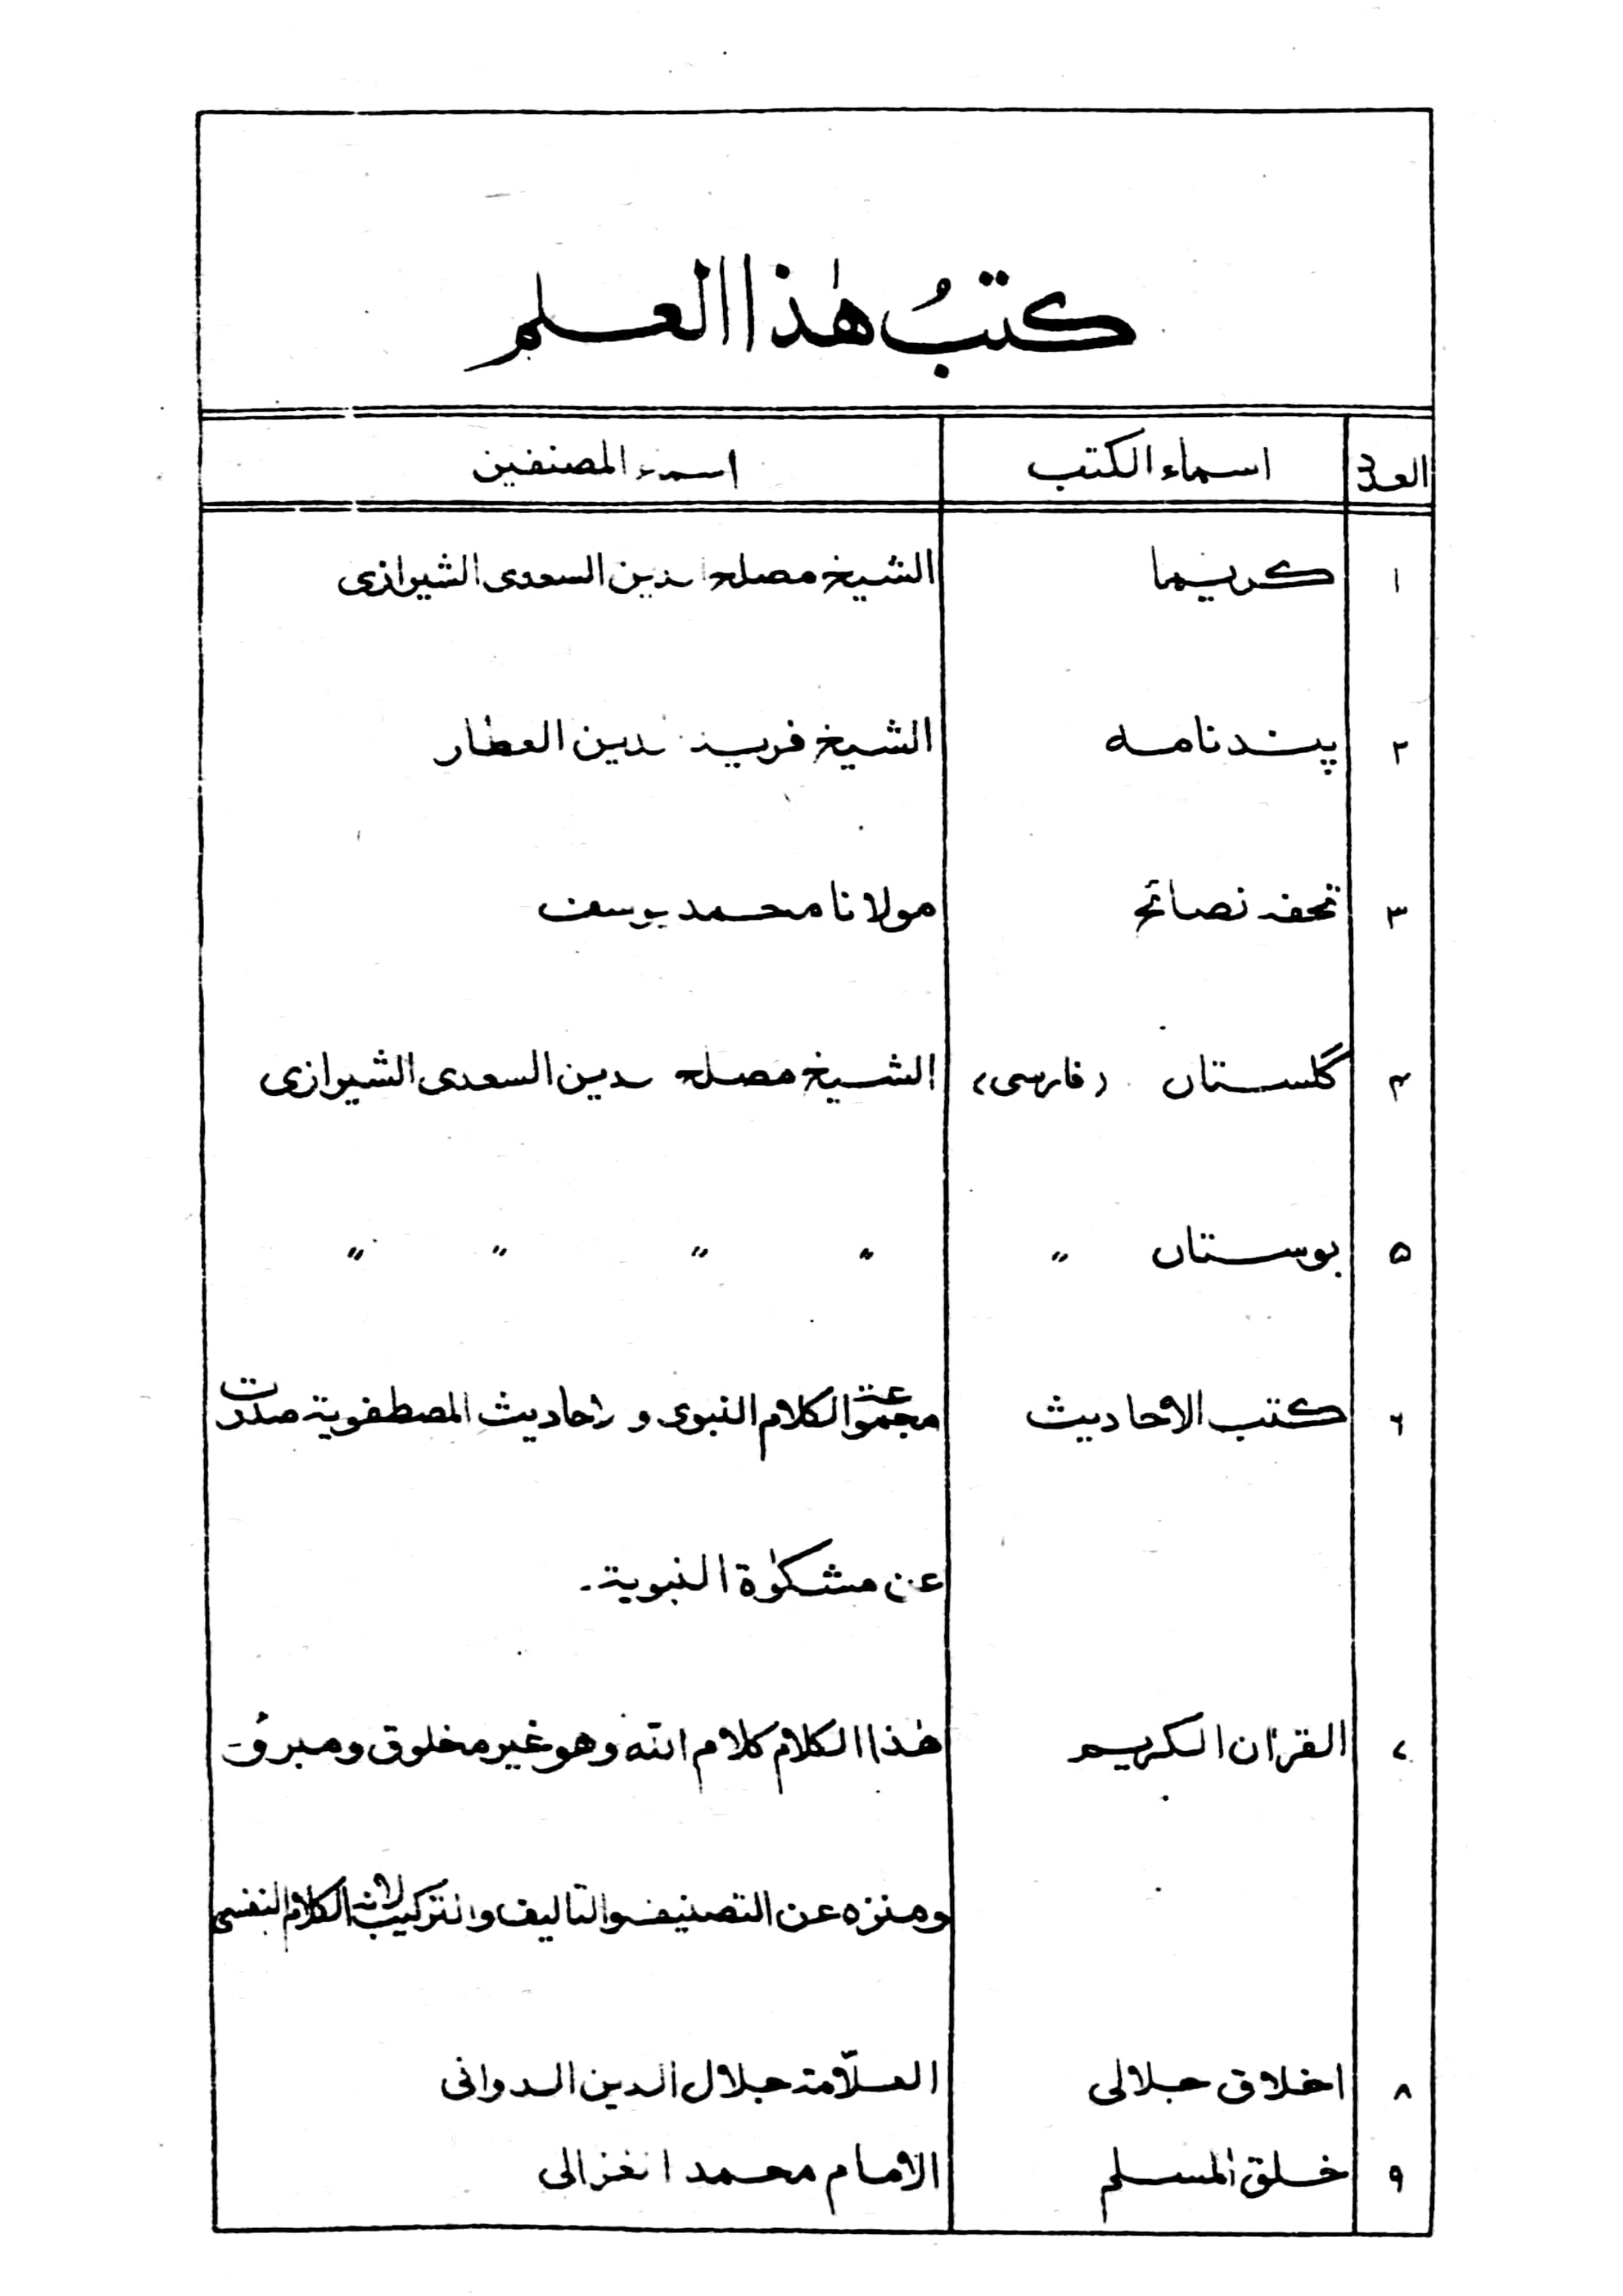 كتبُ هٰذا العلم
العدد اسماء الكتب اسماء المصنفين
۱ كريما الشيخ مصلح الدين السعدى الشيرازى
۲ پندنامه الشيخ فريد الدين العطار
۳ تحفه نصائح مولانا محمد يوسف
۴ گلستان (فارسى) الشيخ مصلح الدين السعدى الشيرازى
۵ بوستان " " " " "
۶ كتب الاحاديث مجموعة الكلام النبوى و احاديث المصطفوية صدرت
عن مشكوٰة النبوية۔
۷ القرآن الكريم هٰذا الكلام كلام الله وهو غير مخلوق ومبرؤ
ومنزه عن التصنيف والتاليف والتركيب لانه الكلام النفسى
۸ اخلاق جلالى العلّامة جلال الدين الدوانى
۹ خلق المسلم الامام محمد الغزالى